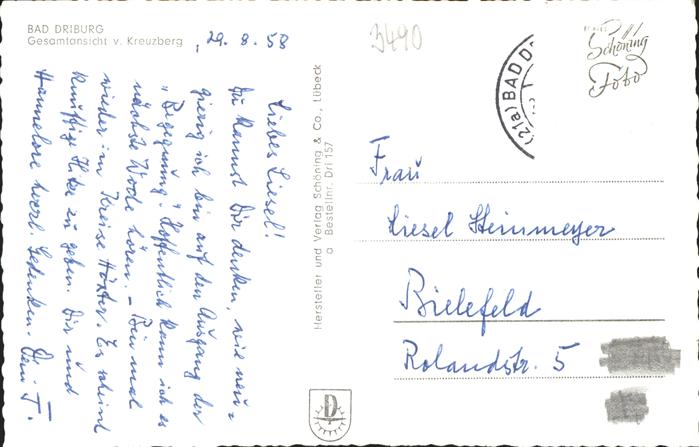 BAD DRIBURG
Gesamtansicht v. Kreuzberg
29. 8. 58
Liebes Liesel!
Du kannst Dir denken, wie neu=
gierig ich bin auf den Ausgang der
"Begegnung". Hoffentlich kann ich es
nächste Woche hören. – Bin mal
wieder im Kreise Höxter. Es scheint
künftige Hitze zu geben. Dir und
Hannelore herzl. Gedenken. Dein T.
Hersteller und Verlag Schöning & Co., Lübeck
o Bestellnr. Dri 157
3490
(21a) BAD D
Schöning
Foto
Frau
Liesel Steinmeyer
Bielefeld
Rolandstr. 5
D